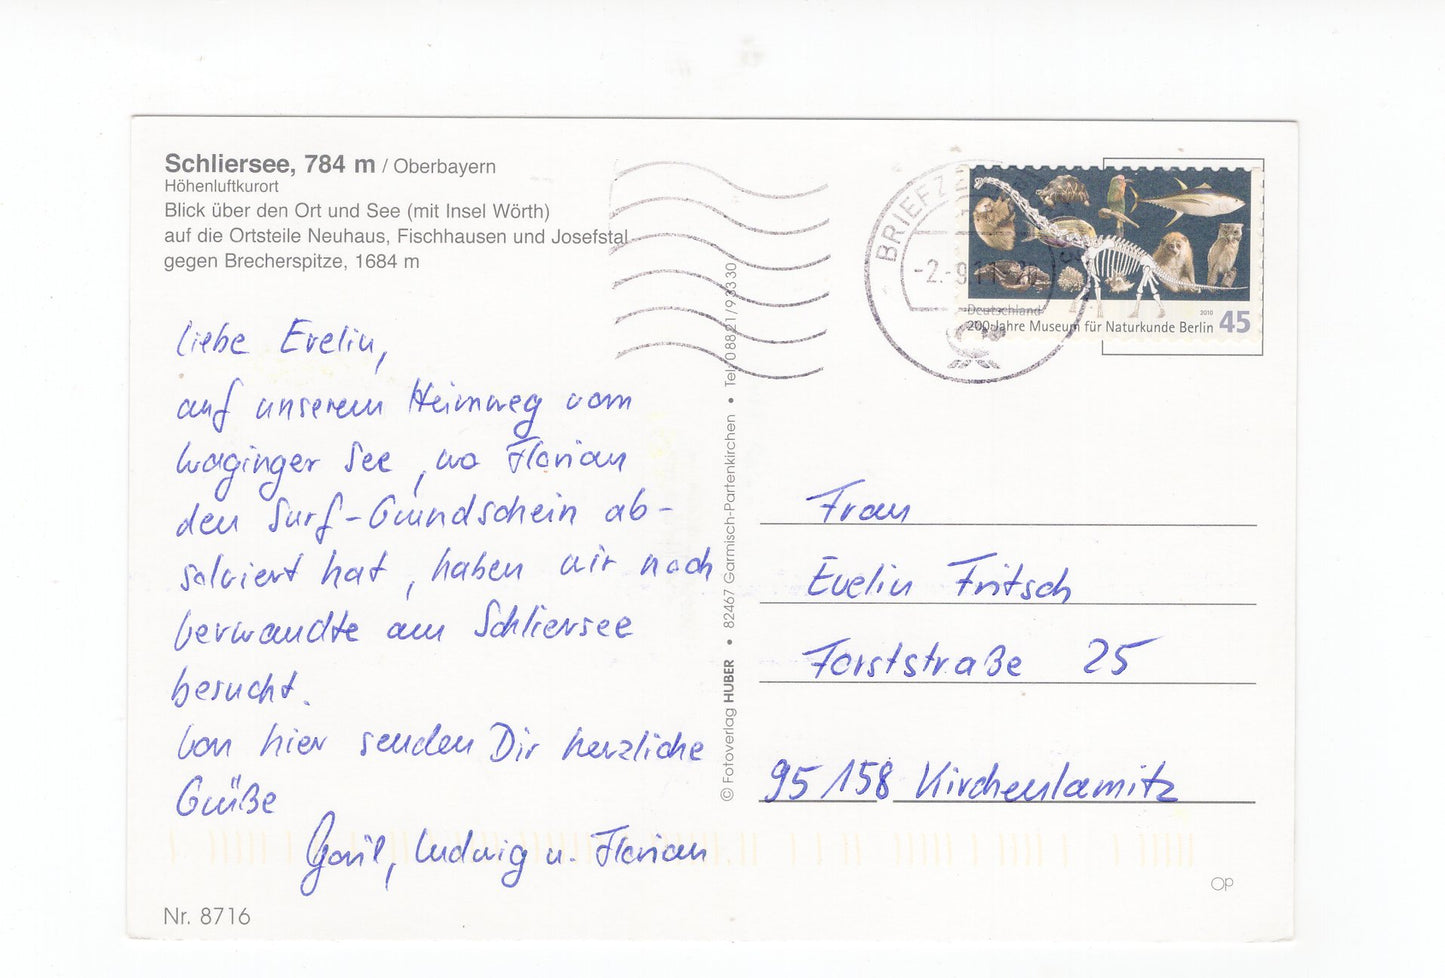 Schliersee, 784 m / Oberbayern
Höhenluftkurort
Blick über den Ort und See (mit Insel Wörth)
auf die Ortsteile Neuhaus, Fischhausen und Josefstal
gegen Brecherspitze, 1684 m
Liebe Evelin,
auf unserem Heimweg vom
Waginger See, wo Florian
den Surf-Grundschein ab-
solviert hat, haben wir noch
Verwandte am Schliersee
besucht.
Von hier senden Dir herzliche
Grüße
Ludwig u. Florian
Nr. 8716
© Fotoverlag HUBER • 82467 Garmisch-Partenkirchen • Tel. 08821/93330
BRIEFZE
-2.-9.11
Deutschland
200 Jahre Museum für Naturkunde Berlin
2010
45
Frau
Evelin Fritsch
Forststraße 25
95158 Kirchenlamitz
OP